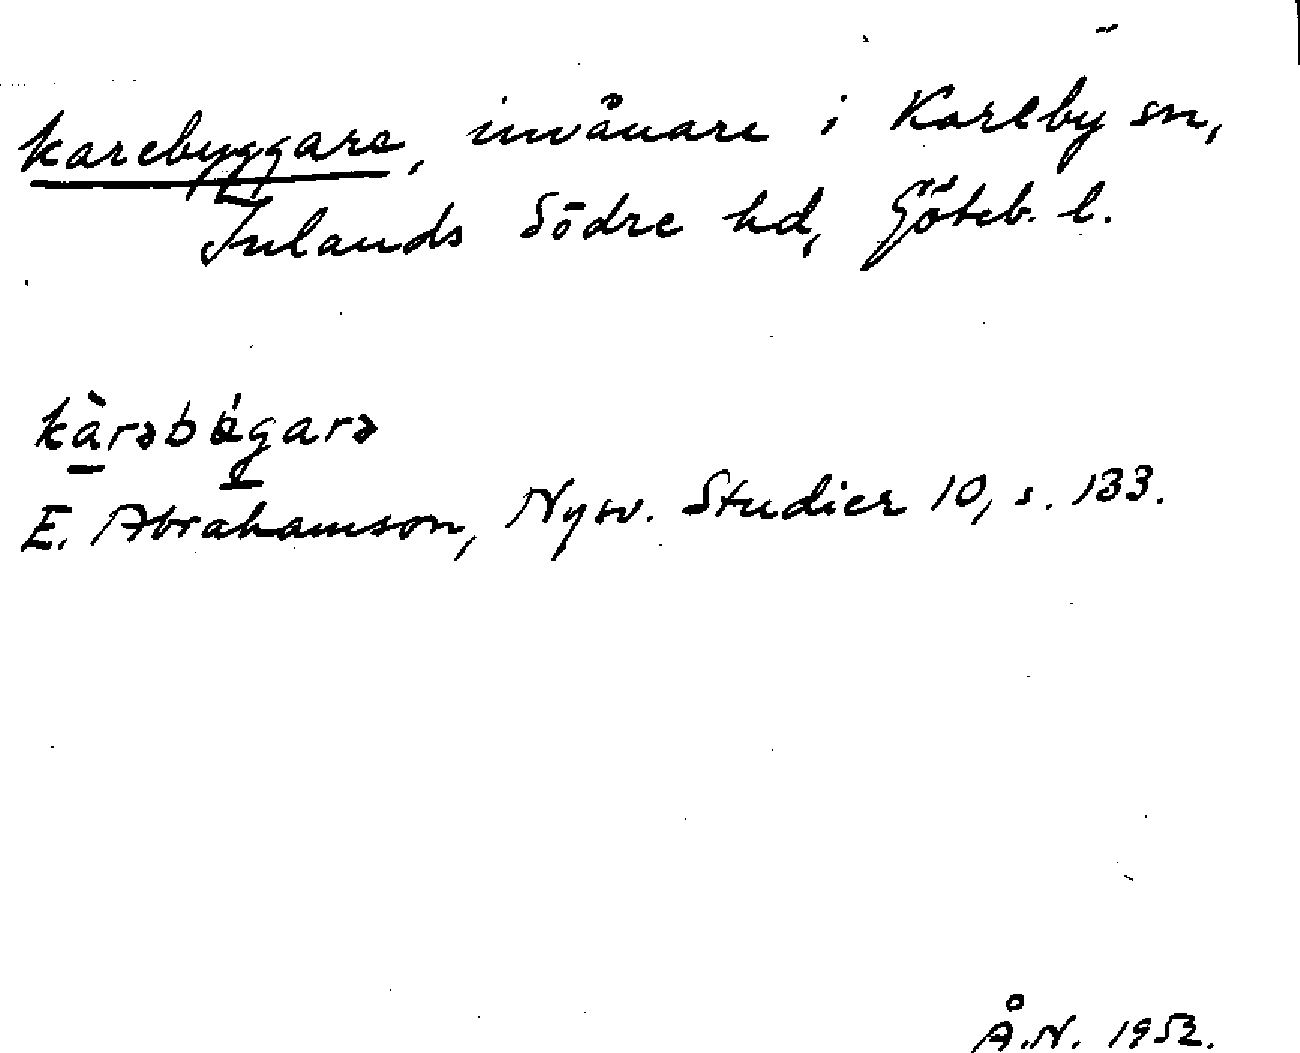 karebyggare, invånare i Kareby sn,
Inlands Södre hd, Göteb. l.
E. Abrahamson, Nysv. Studier 10, s. 133.
Å.N. 1952.